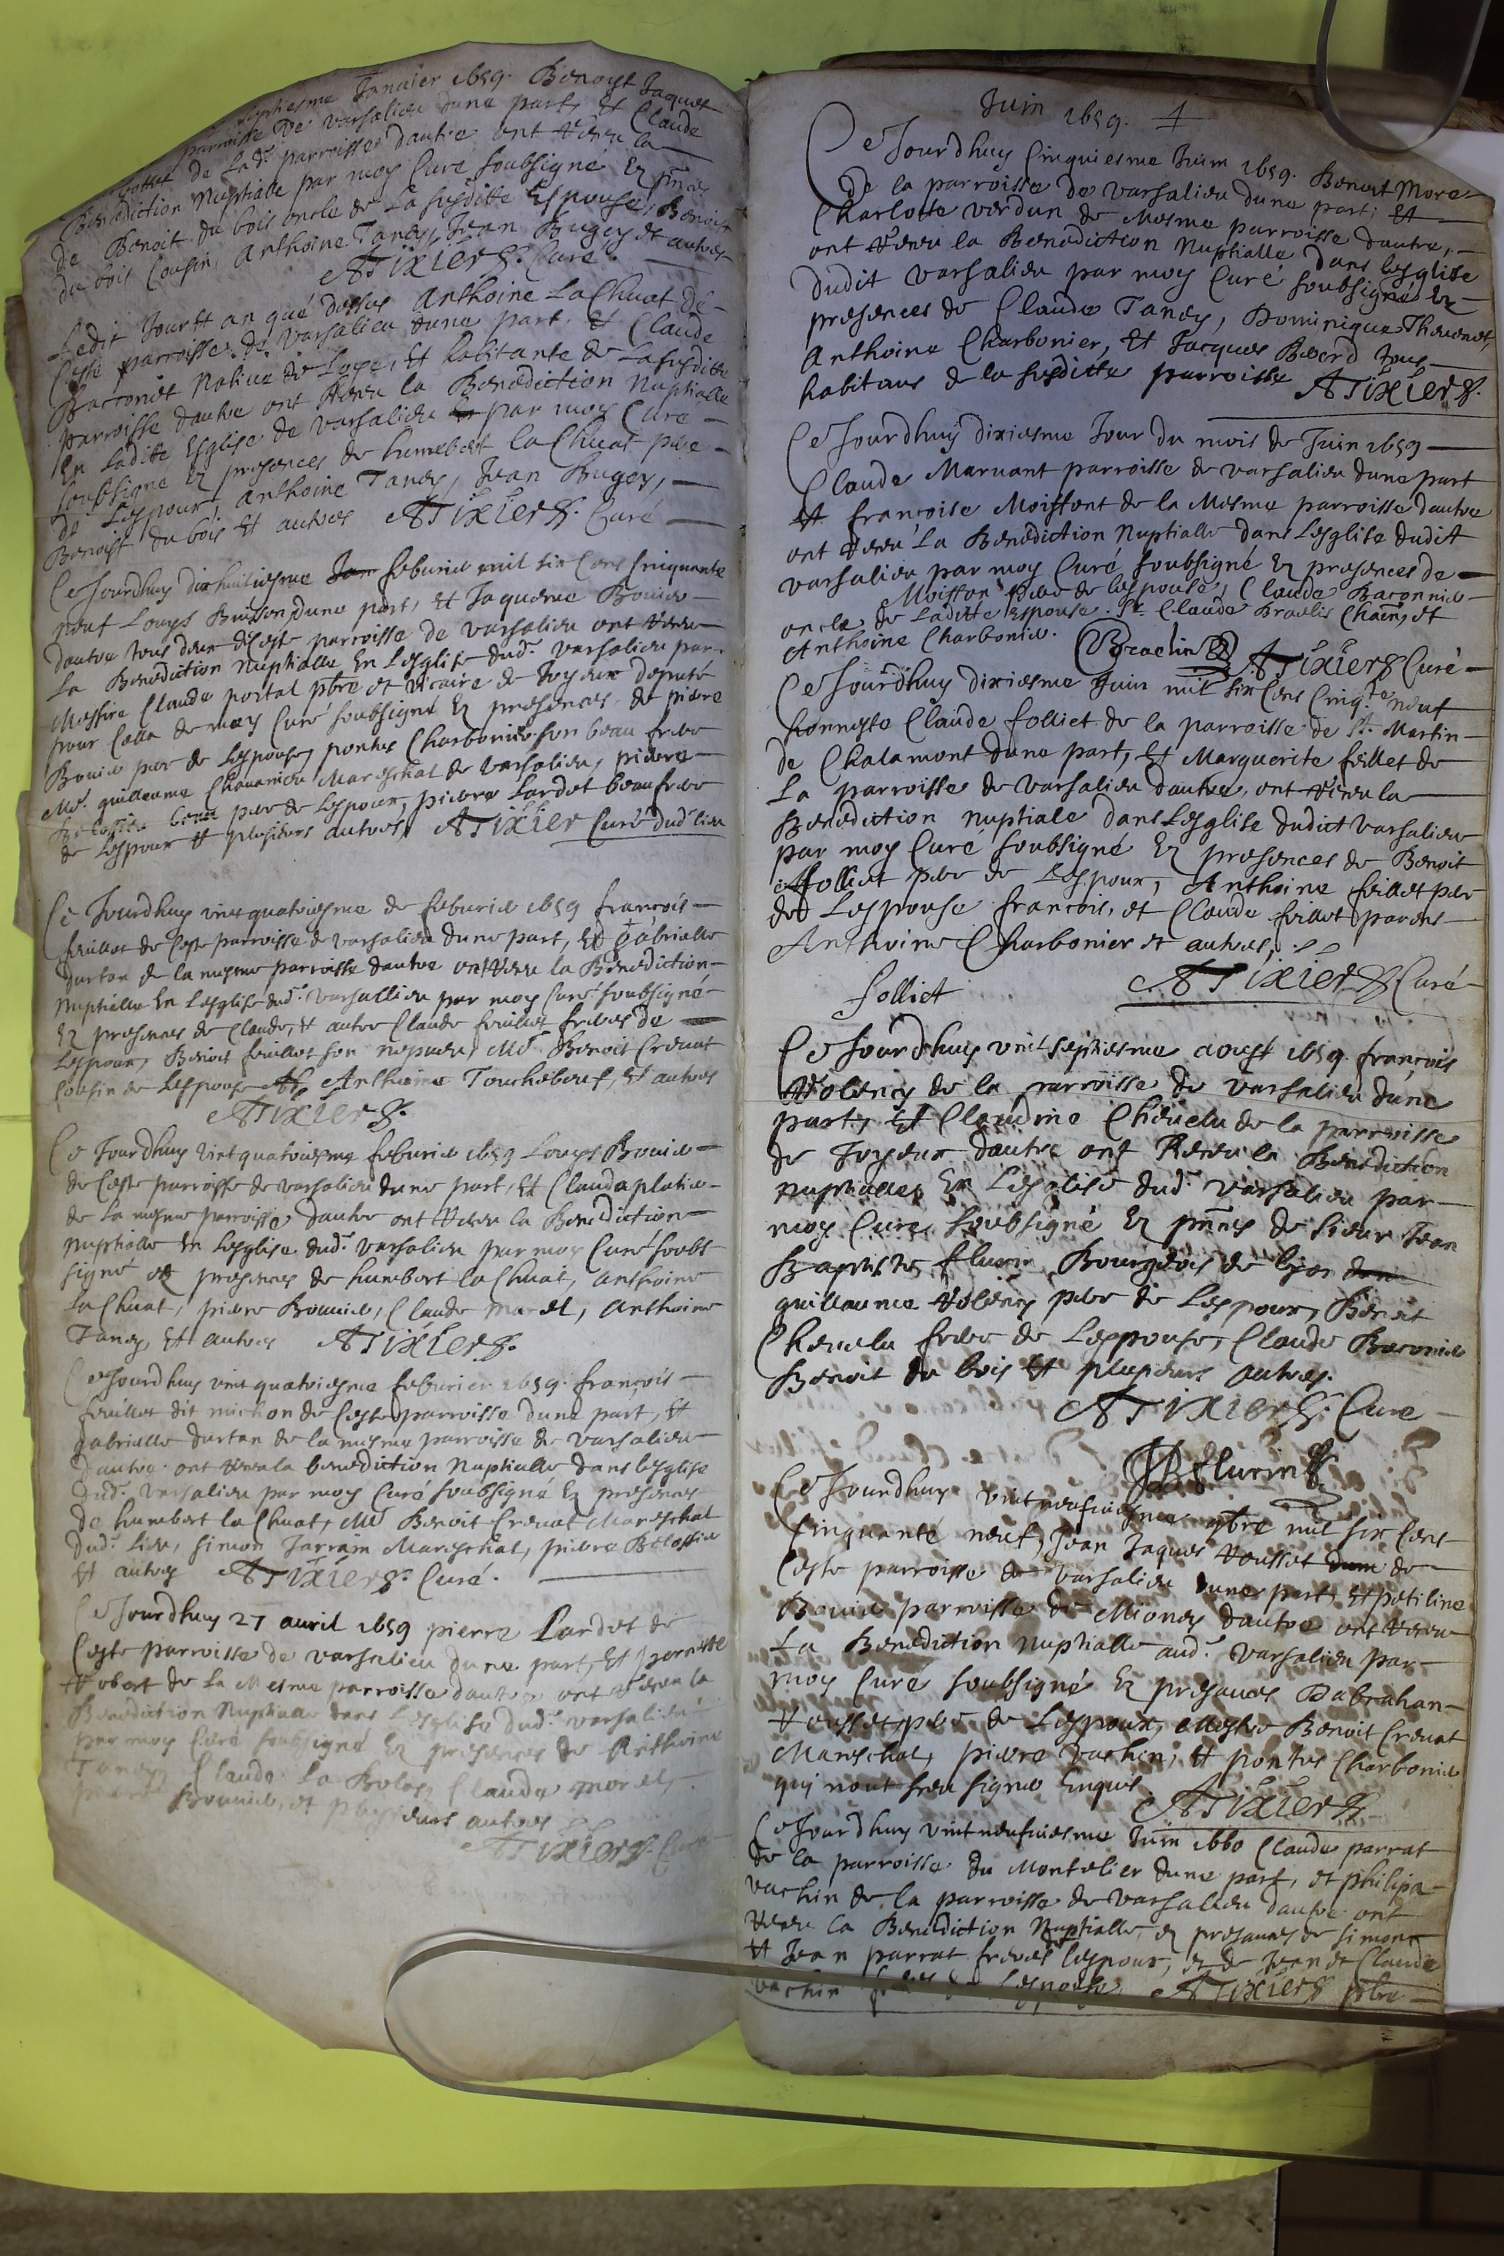 Janvier 1659. Benoist Jaquet
parroisse de varsalieu dune part, et Claude
de lad. parroisse dautre ont receu la
Benediction Nuptialle par moy Curé soubsigné Ez pñces
de Benoit du bois oncle de La susditte Espouse, Benoist
du bois Cousin, Anthoine Taney, Jean Bugey et autres
ATixier Curé.
Ledit Jour et an que dessus Anthoine LaChuat de
Ceste parroisse de varsalieu dune part et Claude
Baconet Native de Loye, et habitante de La susditte
parroisse dautre ont Receu la Benediction Nuptialle
En Ladite Esglise de varsalieu par moy Curé
soubsigné Ez presences de humebert laChuat pere
de Lespoux, Anthoine Taney, Jean Bugey,
Benoist du bois et autres ATixier Curé
Ce Jourdhuy dixhuitiesme feburier mil six Cens Cinquante
neuf Louys Buisson dune part, et Jaqueme Bouier
dautre tous deux de Ceste parroisse de varsalieu ont Receu
La Benediction Nuptialle En Lesglise dud. varsalieu par
Messire Claude portal pbre et vicaire de Joyeux deputé
pour Cella de moy Curé soubsigné Ez presences de pierre
Bouier pere de Lespouse, pontus Charbonier son beau frere
Me. guilleaume Chavanieu Mareschal de varsalieu, pierre
pere de Lespoux, pierre Lardet beaufrere
de Lespoux et plusieurs autres, ATixier Curé dud lieu
Ce Jourdhuy vint quatriesme de feburier 1659 françois
feuillet de Ceste parroisse de varsalieu dune part, Et gabrielle
durtan de la mesme parroisse dautre ont Receu la Benediction
Nuptialle En Lesglise dud. varsallieu par moy Curé soubsigné
Ez presences de Claude, et autre Claude feuillet freres de
Lespoux, Benoit feuillet son nepueu, Me. Benoit Crevat
Cousin de Lespouse Anthoine Touchebeuf, Et autres
ATixier
Ce Jourdhuy vint quatriesme feburier 1659 Louys Bouier
de Ceste parroisse de varsalieu dune part, Et Clauda platier
de La mesme parroisse dautre ont Receu la Benediction
Nuptialle En Lesglise dud. varsalieu par moy Curé soubs
signé Ez presences de humbert la Chuat, Anthoine
LaChuat, pierre Bouuier, Claude morel, Anthoine
Taney, Et autres ATixier.
Ce Jourdhuy vint quatriesme feburier 1659. françois
feuillet dit michon de Ceste parroisse dune part, Et
gabrielle durtan de la mesme parroisse de varsalieu
dautre ont Receu la benediction Nuptialle dans lesglise
dud. varsalieu par moy Curé soubsigné Ez presences
de humbert la Chuat, Me. Benoit Crevat Mareschal
dud. lieu, simon Jarrain Mareschal, pierre
Et autres ATixier Curé.
Ce Jourdhuy 27 avril 1659 pierre Lardet de
Ceste parroisse de varsalieu dune part, Et pernette
Robert de La Mesme parroisse dautre ont Receu la
Benediction Nuptialle dans Lesglise dud. varsalieu
par moy Curé soubsigné Ez presences de Anthoine
Taney, Claude La Claude morel,
pierre Bouuier, et plusieurs autres
ATixier Curé
Juin 1659.
Ce Jourdhuy Cinquiesme Juin 1659. Benoit More
de la parroisse de varsalieu dune part, Et
Charlotte verdun de Mesme parroisse dautre,
ont Receu la Benediction Nuptialle dans lesglise
dudit varsalieu par moy Curé soubsigné Ez
presences de Claude Taney, Dominique Thevenet,
Anthoine Charbonier, Et Jacques Beerd tous
habitans de la susditte parroisse ATixier.
Ce Jourdhuy dixiesme Jour du mois de Juin 1659
Claude Maruant parroisse de varsalieu dune part
et françoise Moissont de la Mesme parroisse dautre
ont Receu La Benediction Nuptialle dans Lesglise dudit
varsalieu par moy Curé soubsigné Ez presences de
Moisson Pere de lespouse, Claude Baconnier
oncle de Laditte Espouse. Sr. Claude Braclis Chaën, et
Anthoine Charbonier. Braclin ATixier Curé
Ce Jourdhuy dixiesme Juin mil six Cens Cinqte neuf
honneste Claude folliet de la parroisse de St. Martin
de Chalamont dune part, Et Marguerite feillet de
La parroisse de varsalieu dautre, ont Receu la
Benediction nuptiale dans Lesglise dudict varsalieu
par moy Curé soubsigné Ez presences de Benoit
ffolliet pere de Lespoux, Anthoine feillet pere
de Lespouse françois, et Claude feillet parens
Anthoine Charbonier et autres,
folliet ATixier Curé
Ce Jourdhuy vint septiesme aoust 1659. françois
Voleney de la parroisse de varsalieu dune
part, Et Claudine Chevelu de la parroisse
de Joyeux dautre ont Receu la Benediction
Nuptialle, En Lesglise dud. varsalieu par
moy Curé, soubsigné Ez pñces de sieur Jean
Baptiste flurin Bourgeois de lyon
guilleaume Voleney pere de Lespoux, Benoit
Chevelu frere de Lespouse, Claude Baconier
Benoit du bois Et plusieurs autres.
ATixier Curé
JBflurin
Ce Jourdhuy vint neufuiesme 9bre mil six Cens
Cinquante neuf, Jean Jaques Rousset de
Ceste parroisse de varsalieu dune part, Et
Bouier parroisse de Mioney dautre ont Receu
La Benediction Nuptialle aud. varsalieu par
moy Curé soubsigné Ez presances Dabrahan
Rousset, pere de Lespoux, Mestre Benoit Crevat
Mareschal, pierre vachin, et pontus Charbonier
qui nont sceu signer Enquis ATixier
Ce Jourdhuy vint neufuiesme Juin 1660 Claude parrat
de la parroisse du Montelier dune part, et philipa
vachin de la parroisse de varsalieu dautre ont
Receu la Benediction Nuptialle, Ez presances de simone
et Jean parrat freres de lespoux, et de Jean et Claude
vachin de Lespouse ATixier pbre